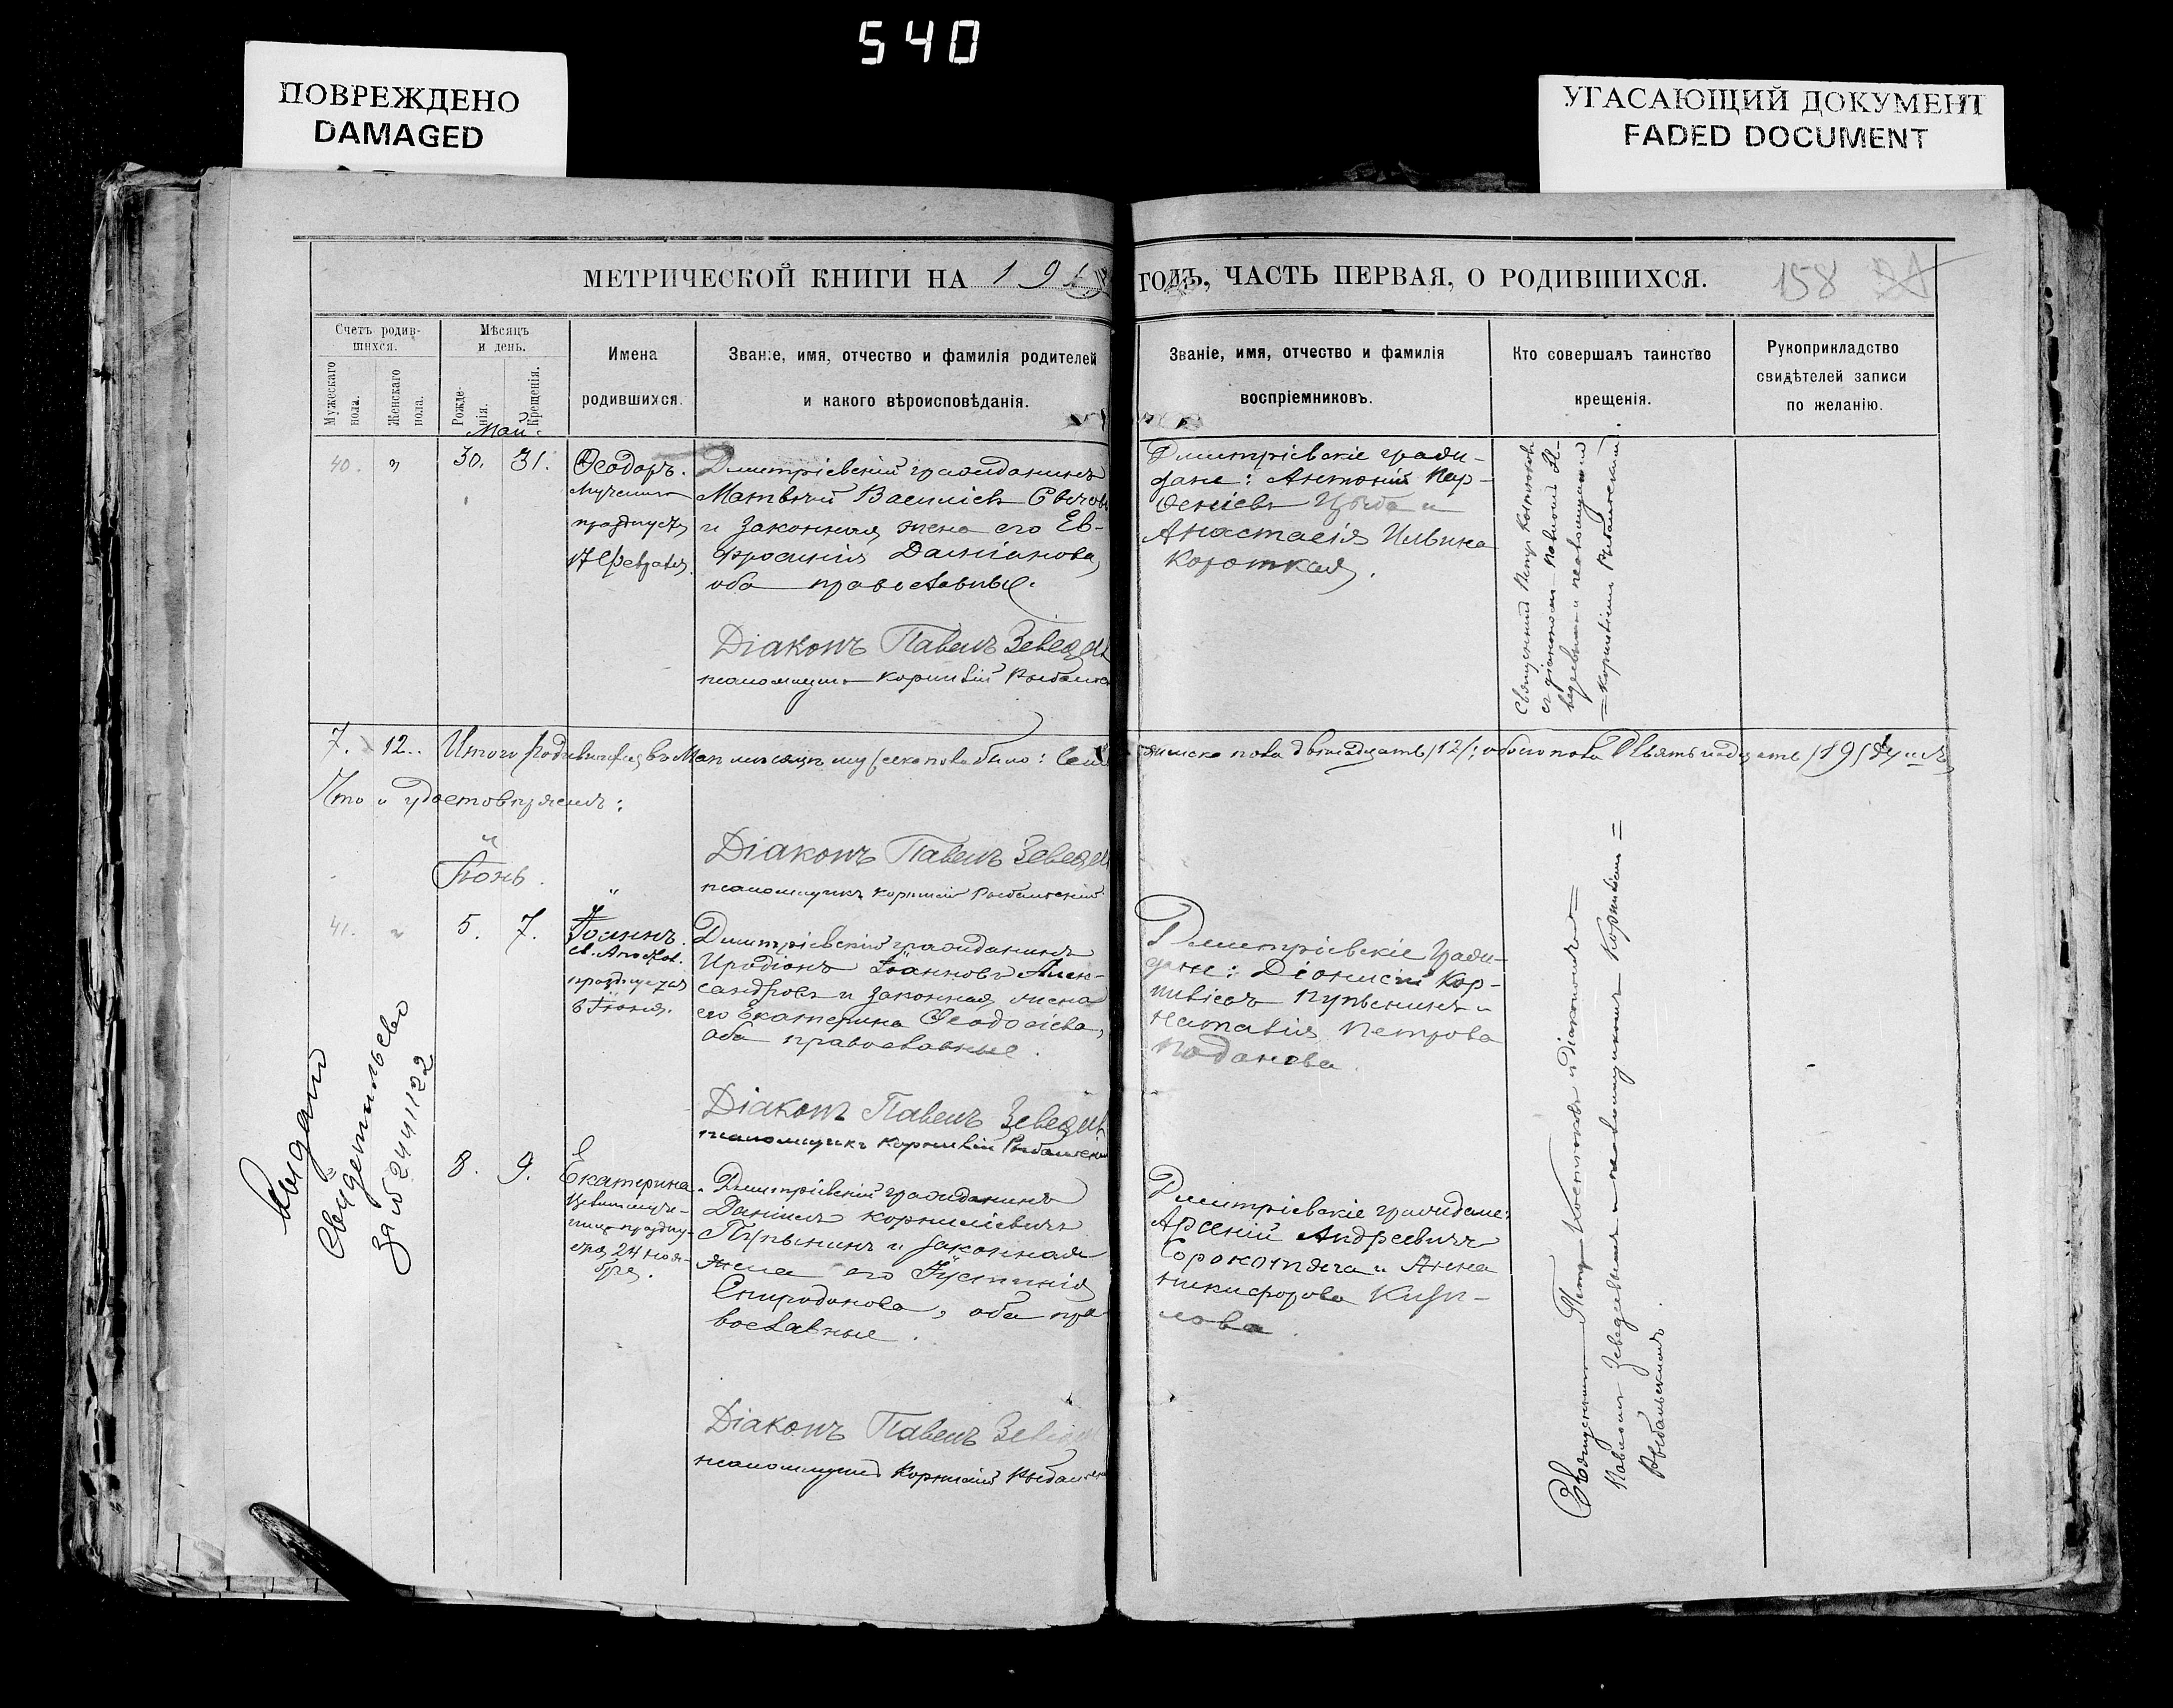 540
ПОВРЕЖДЕНО
DAMAGED
УГАСАЮЩИЙ ДОКУМЕНТ
FADED DOCUMENT
МЕТРИЧЕСКОЙ КНИГИ НА 191
ГОДЪ, ЧАСТЬ ПЕРВАЯ, О РОДИВШИХСЯ.
158
Счетъ родив-
шихся.
Мужескаго
пола.
Женскаго
пола.
Мѣсяцъ
и день.
Рожде-
нія.
Крещенія.
Имена
родившихся.
Званіе, имя, отчество и фамилія родителей
и какого вѣроисповѣданія.
Званіе, имя, отчество и фамилія
воспріемниковъ.
Кто совершалъ таинство
крещенія.
Рукоприкладство
свидѣтелей записи
по желанію.
Май.
40. 30. 31.
Ѳеодоръ.
празднуется
17 Февраля.
Дмитріевскій гражданинъ
Матвѣй
и законная жена его Ев-
фросинія Даміанова,
оба православные.
Діаконъ Павелъ Зеведе
псаломщикъ Корнилій
Дмитріевскіе граж-
дане: Антоній Пар-
ѳеніевъ Цыба и
Анастасія Ильина
Короткая.
Священникъ Петръ Костюковъ
съ діакономъ Павломъ Зе-
ведеевымъ и псаломщикомъ
Корниліемъ Рыбальскимъ.
7. 12. Итого родившихся въ Маѣ мѣсяцѣ мужеска пола было: семь
женска пола двѣнадцать /12/; обоего пола девятнадцать /19/ душъ,
Что и удостовѣряемъ:
Діаконъ Павелъ Зеведе
псаломщикъ Корнилій Рыбальскій
Іюнь.
41. 5. 7.
Іоаннъ.
св. Апостол.
празднуется
Іюня.
Дмитріевскій гражданинъ
Иродіонъ Іоанновъ Алек-
сандровъ и законная жена
его Екатерина Ѳеодосіева,
оба православные.
Діаконъ Павелъ Зеведе
псаломщикъ Корнилій
Дмитріевскіе граж-
дане: Діонисій Кор-
ниліевъ Пупынинъ и
Наталія Петрова
Выдано
Свидетельство
за № 2441122
8. 9.
Екатерина
Великомуче-
ница праздну-
ется 24 нояб-
бря.
Дмитріевскій гражданинъ
Даніилъ Корниліевичъ
Пупынинъ и законная
жена его Іустинія
Спиридонова, оба пра-
вославные.
Діаконъ Павелъ
псаломщикъ Корнилій
Дмитріевскіе граждане:
Арсеній Андреевичъ
Сорокотяга и Анна
Никифорова Кири-
лова.
Священникъ Петръ Костюковъ съ діакономъ
Павломъ Зеведеевымъ и псаломщикомъ Корниліемъ
Рыбальскимъ.